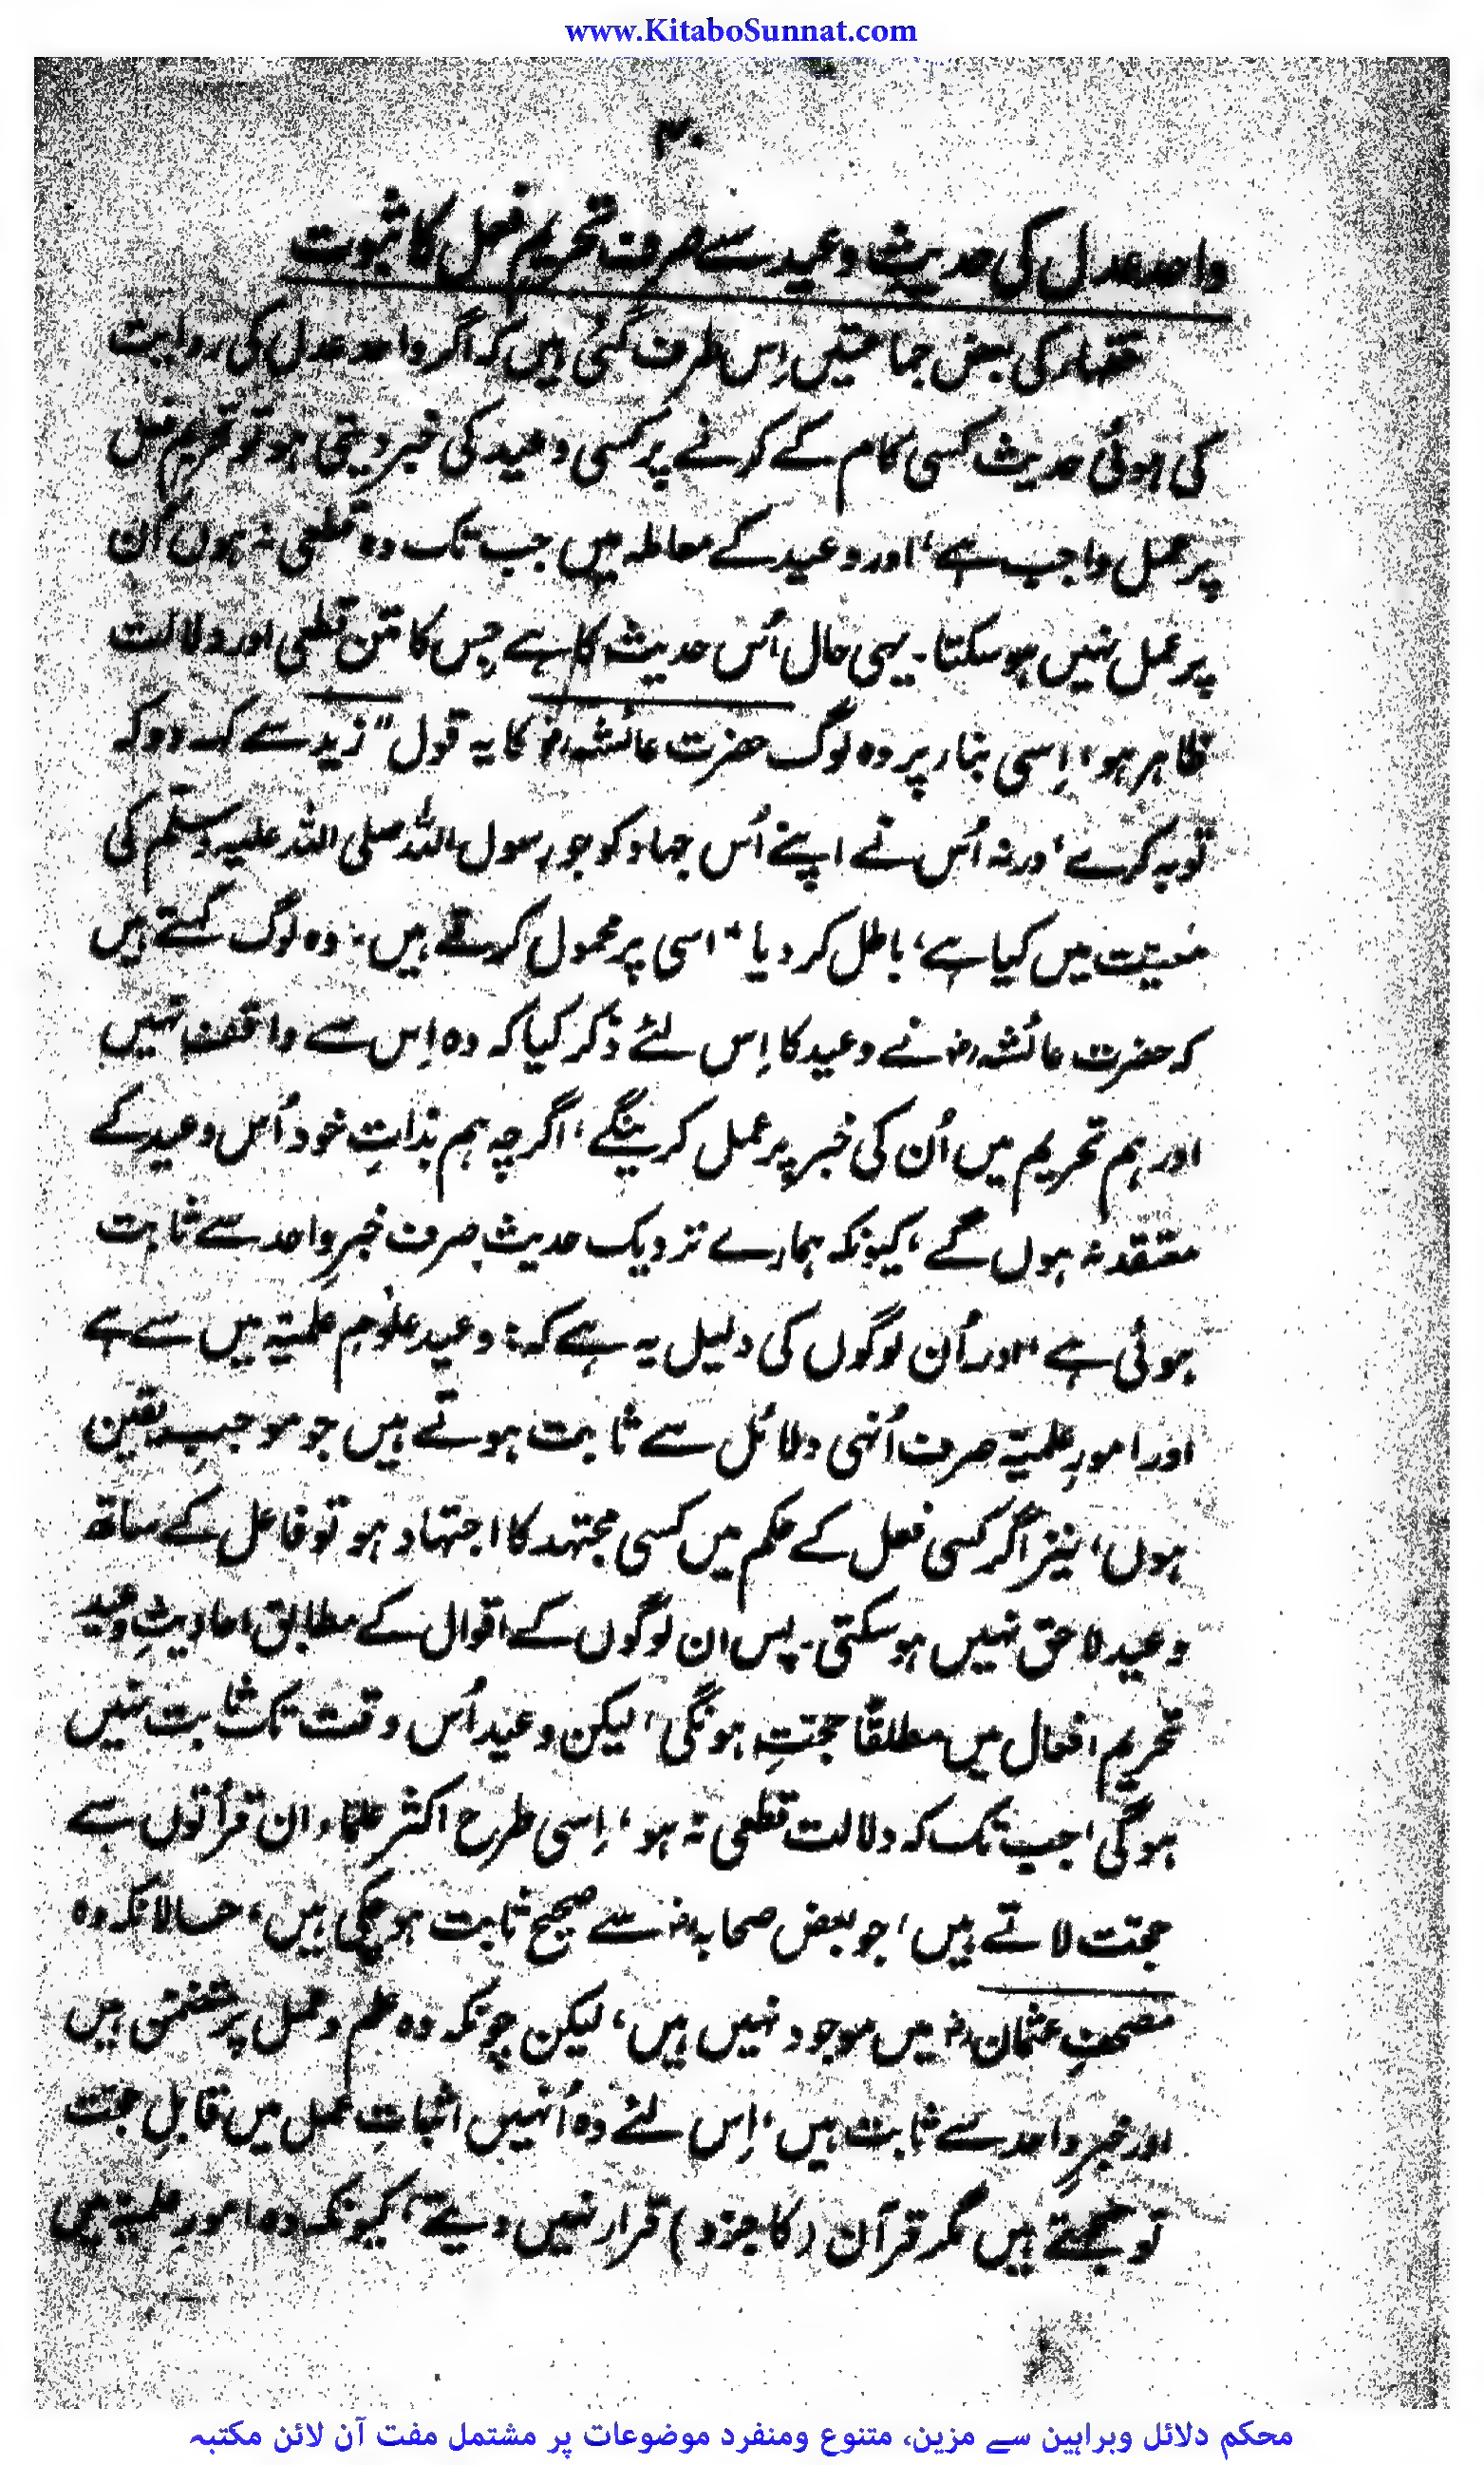 www.KitaboSunnat.com
۳۰
واحد عدل کی حدیث وعید سے صرف تحریم فعل کا ثبوت
فقہاء کی بعض جماعتیں اِس طرف گئی ہیں کہ اگر واحد عدل کی روایت
کی ہوئی حدیث کسی کام کے کرنے پر کسی وعید کی خبر دیتی ہو تو تحریم فعل
پر عمل واجب ہے، اور وعید کے معاملہ میں جب تک وہ قطعی نہ ہوں اُن
پر عمل نہیں ہو سکتا۔ یہی حال اُس حدیث کا ہے جس کا متن قطعی اور دلالت
ظاہر ہو، اِسی بناء پر وہ لوگ حضرت عائشہؓ کا یہ قول "زید سے کہہ دو کہ
توبہ کرے، ورنہ اُس نے اپنے اُس جہاد کو جو رسول اللہ صلی اللہ علیہ وسلم کی
معیّت میں کیا ہے، باطل کر دیا" اسی پر محمول کرتے ہیں: وہ لوگ کہتے ہیں
کہ حضرت عائشہؓ نے وعید کا اِس لئے ذکر کیا کہ وہ اِس سے واقف تھیں
اور ہم تحریم میں اُن کی خبر پر عمل کرینگے، اگرچہ ہم بذاتِ خود اُس وعید کے
معتقد نہ ہوں گے، کیونکہ ہمارے نزدیک حدیث صرف خبرِ واحد سے ثابت
ہوئی ہے" اور اُن لوگوں کی دلیل یہ ہے کہ: وعید علومِ علمیّہ میں سے ہے
اور امورِ علمیّہ صرف اُنہی دلائل سے ثابت ہوتے ہیں جو موجبِ یقین
ہوں، نیز اگر کسی فعل کے حکم میں کسی مجتہد کا اجتہاد ہو تو فاعل کے ساتھ
وعید لاحق نہیں ہو سکتی۔ پس ان لوگوں کے اقوال کے مطابق احادیثِ وعید
تحریمِ افعال میں مطلقًا حجتِ ہونگی، لیکن وعید اُس وقت تک ثابت نہیں
ہوگی، جب تک کہ دلالت قطعی نہ ہو، اِسی طرح اکثر علماء ان قرأتوں سے
حجت لاتے ہیں، جو بعض صحابہؓ سے صحیح ثابت ہو چکی ہیں، حالانکہ وہ
مصحفِ عثمانؓ میں موجود نہیں ہیں، لیکن چونکہ وہ علم و عمل پر متضمن ہیں
اور خبرِ واحد سے ثابت ہیں، اِس لئے وہ اُنہیں اثباتِ عمل میں قابلِ حجت
تو سمجھتے ہیں مگر قرآن (کا جزو) قرار نہیں دیتے، کیونکہ وہ امورِ علمیّہ ہی
محکم دلائل وبراہین سے مزین، متنوع ومنفرد موضوعات پر مشتمل مفت آن لائن مکتبہ